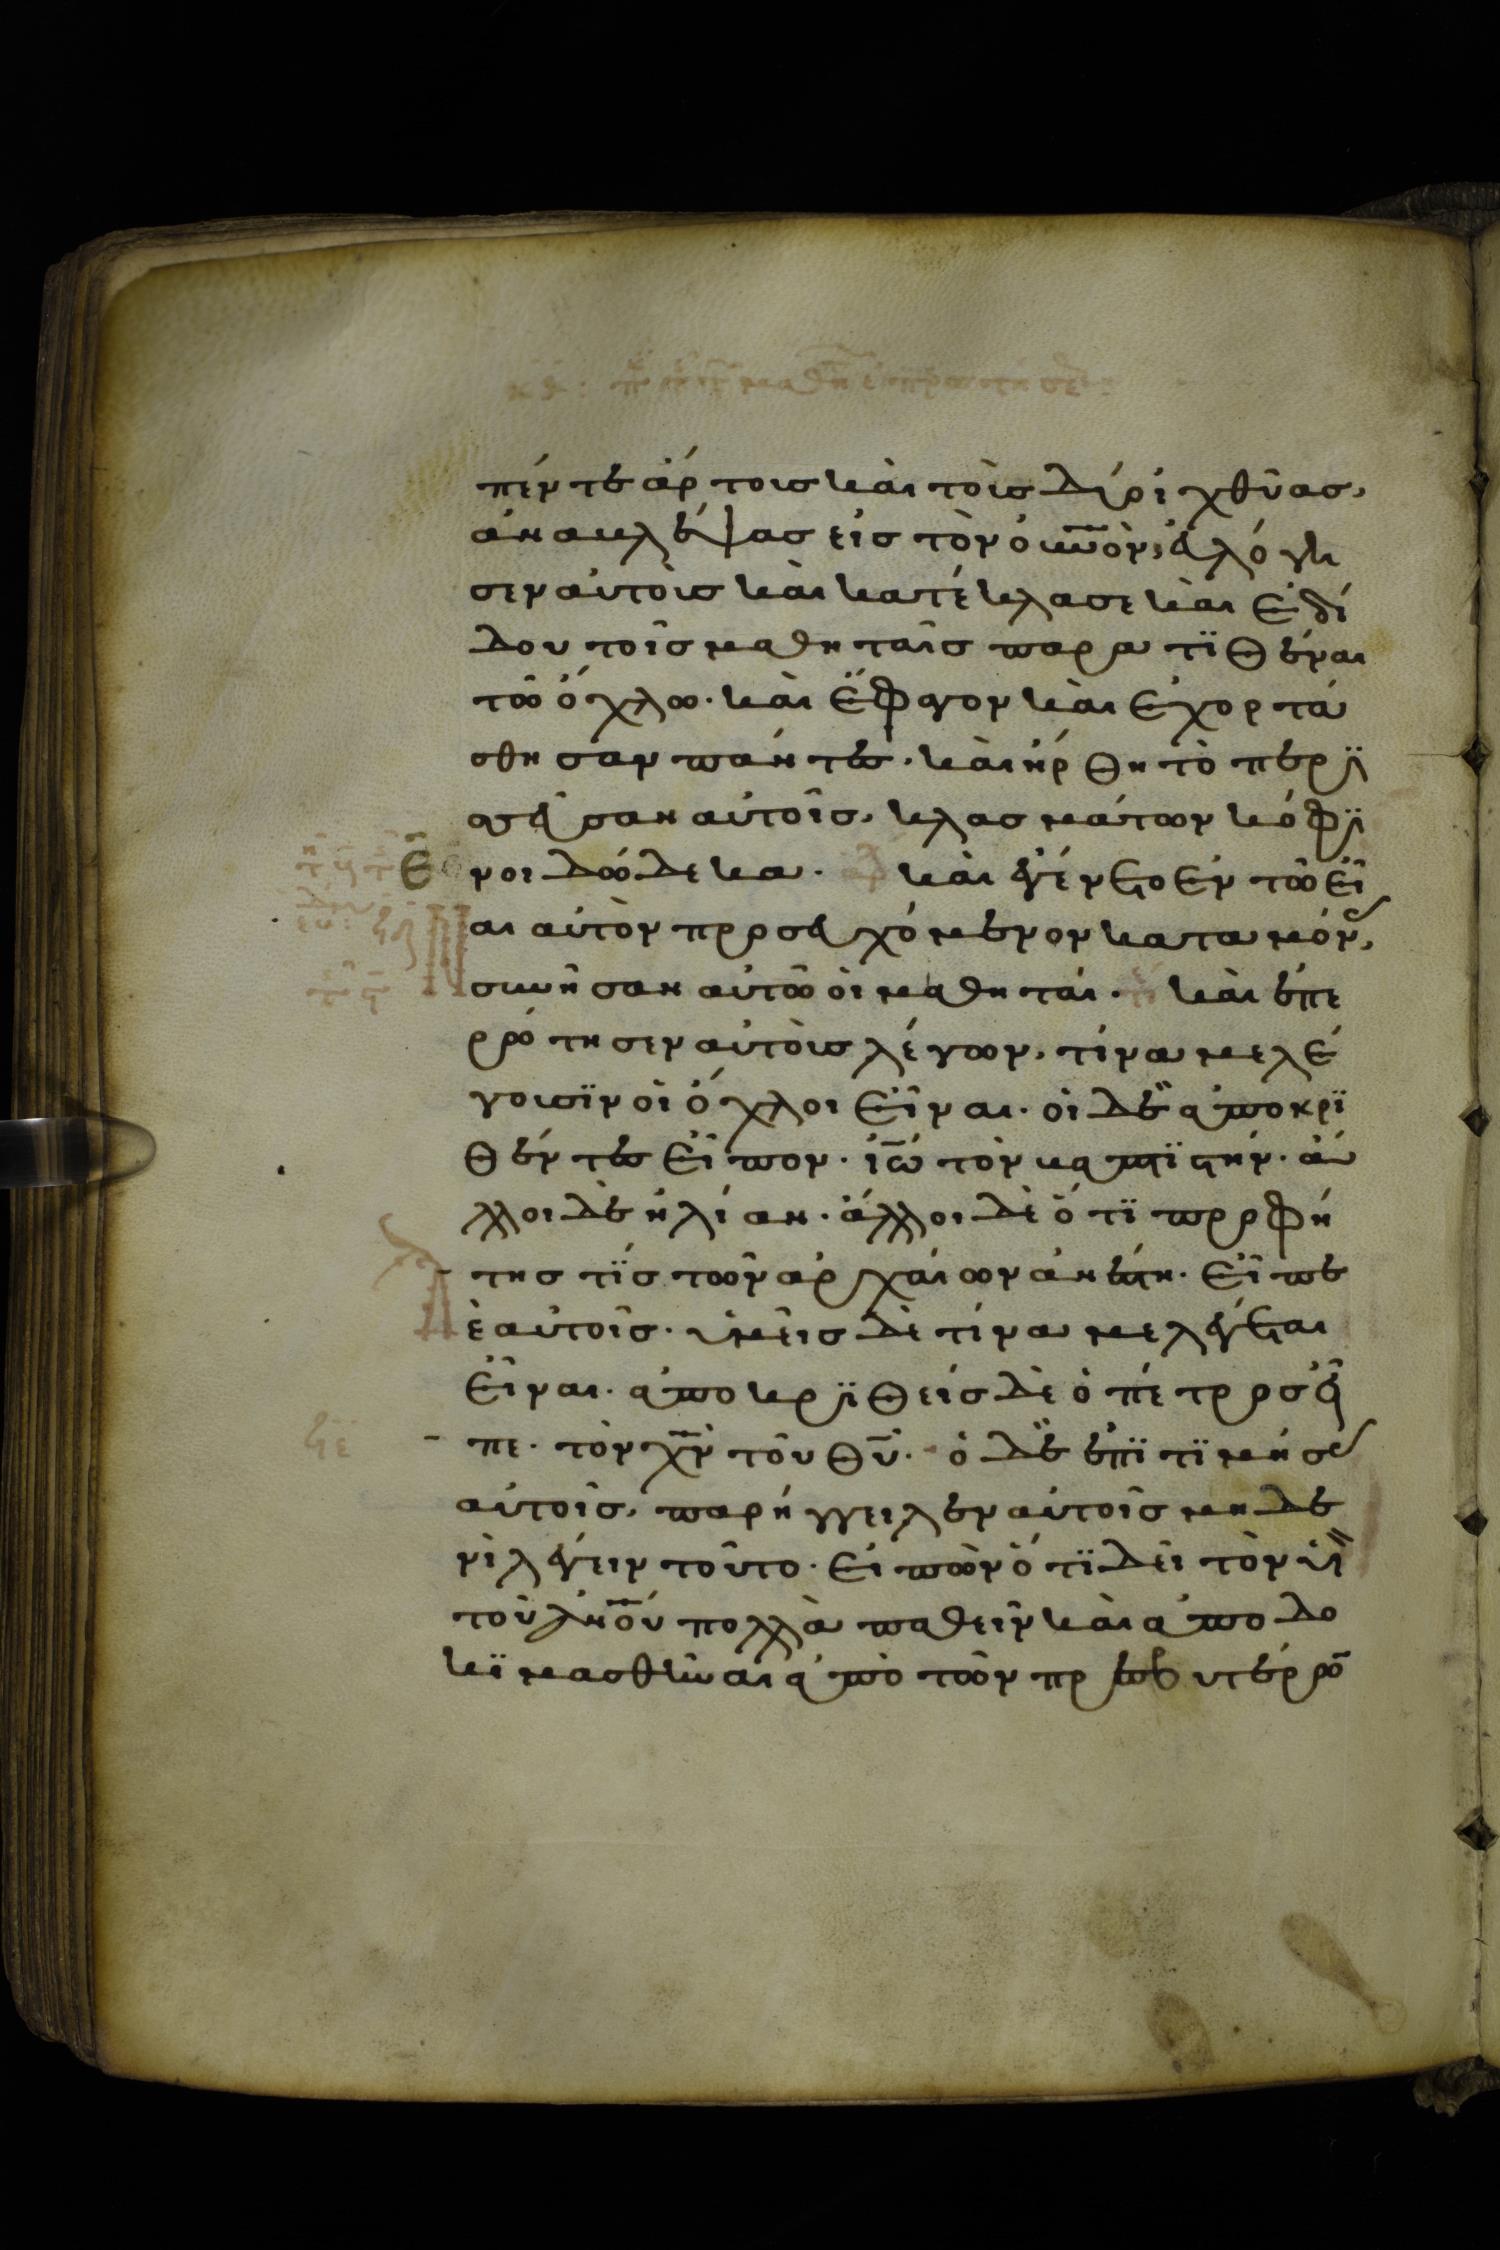 πέντε ἄρτους καὶ τοὺς δύο ἰχθύας,
ἀναβλέψας εἰς τὸν οὐνον, εὐλόγη
σεν αὐτοὺς καὶ κατέκλασε καὶ ἐδί
δου τοῖς μαθηταῖς παρατϊθέναι
τῶ ὄχλω· καὶ ἔφαγον καὶ ἐχορτά
σθησαν πάντες· καὶ ἤρθη τὸ περϊ
σσεῦσαν αὐτοῖς, κλασμάτων κόφϊ
νοι δώδεκα· καὶ ἐγένετο ἐν τῶ εἶ
αι αὐτὸν προσευχόμενον καταμόν,
συνῆσαν αὐτῶ οἱ μαθηταί· καὶ ἐπε
ρώτησεν αὐτοὺς λέγων, τίνα με λέ
γουσϊν οἱ ὄχλοι εἶναι· οἱ δὲ ἀποκρϊ
θέντες εἶπον· ἰω τὸν βαπτϊστήν· ἄ
λλοι δὲ ἠλίαν· ἄλλοι δὲ ὅτϊ προφή
της τϊς τῶν ἀρχαίων ἀνέστη· εἶπε
ὲ αὐτοῖς· ὑμεῖς δὲ τίνα με λέγεται
εἶναι· ἀποκρϊθεὶς δὲ ὁ πέτρος εἶ
πε· τὸν χν τοῦ θυ· ὁ δὲ ἐπϊτϊμήσ
αὐτοῖς, παρήγγειλεν αὐτοῖς μηδε
νὶ λέγειν τοῦτο· εἰπὼν ὅτϊ δεῖ τὸν ὑν
τοῦ ανου πολλὰ παθεῖν καὶ ἀποδο
κϊμασθῆναι ἀπὸ τῶν πρεσβυτέρω